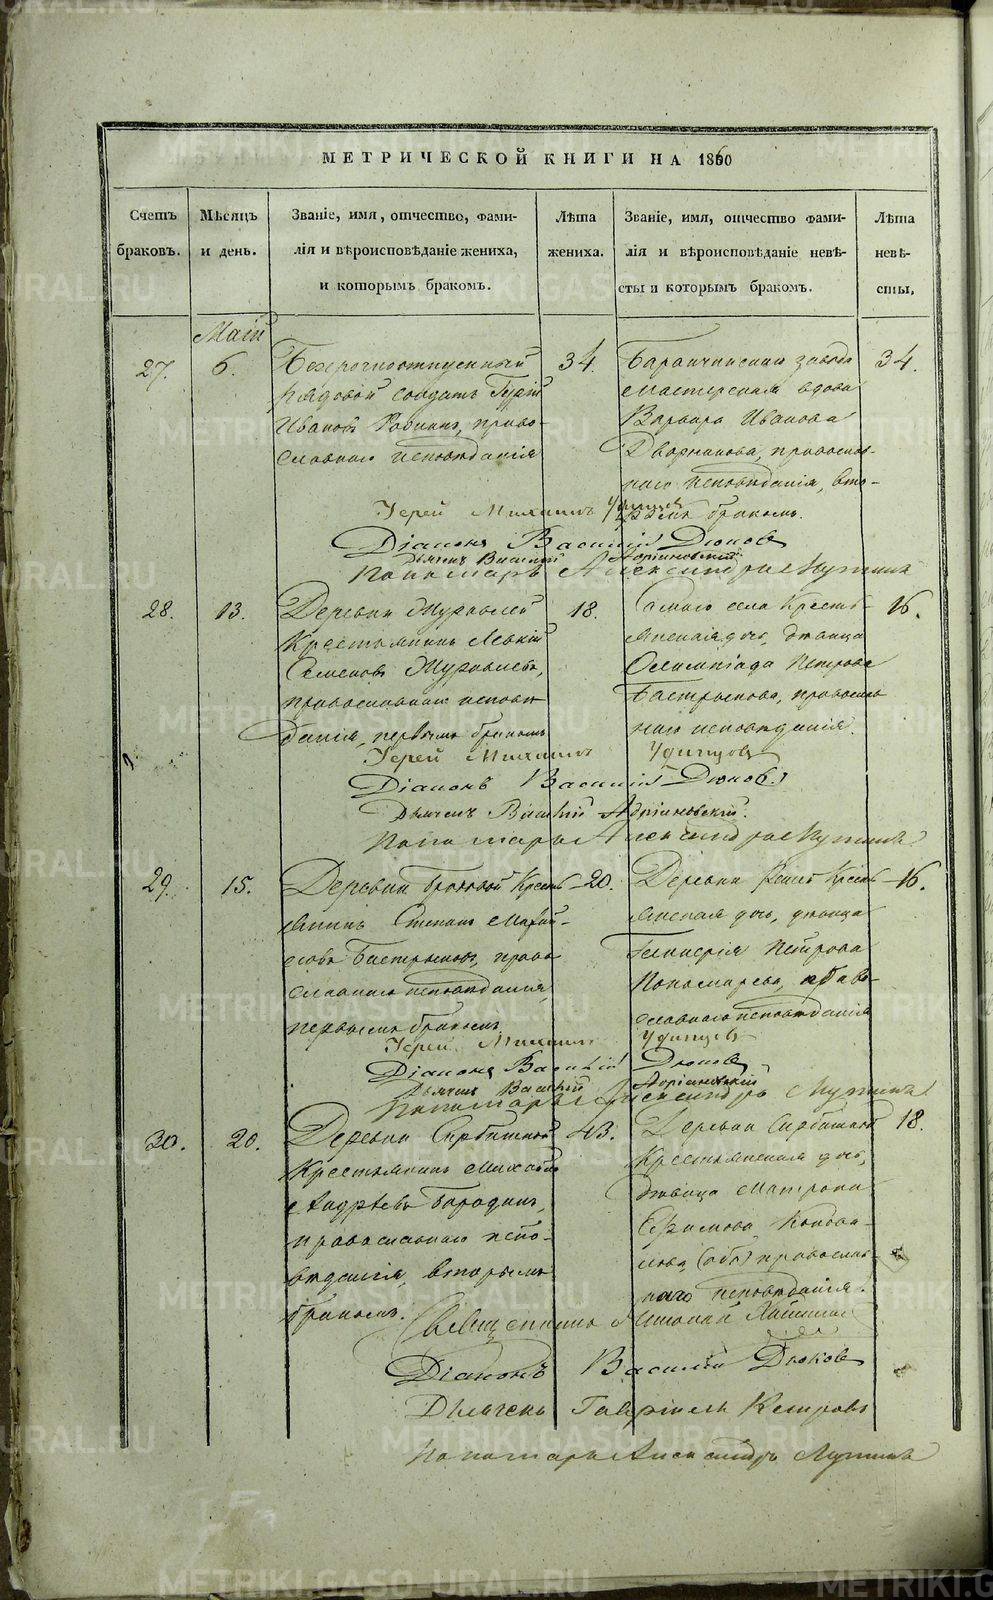 МЕТРИЧЕСКОЙ КНИГИ НА 1860
Счетъ браковъ.
Мѣсяцъ и день.
Званіе, имя, отчество, фами-
лія и вѣроисповѣданіе жениха,
и которымъ бракомъ.
Лѣта жениха.
Званіе, имя, отчество фами-
лія и вѣроисповѣданіе невѣ-
сты и которымъ бракомъ.
Лѣта невѣ-
сты,
Маій
27.
6.
Безсрочноотпускный
рядовой солдатъ
Иванов православнаго исповѣданія
34.
завода
мастерская вдова
Варвара Иванова
православ-
наго исповѣданія, вто-
рымъ бракомъ.
34.
Іерей Михаилъ Удинцевъ
Діаконъ Василій Дюковъ
Дьячекъ Василій Адріановскій
Пономарь Александръ
28.
13.
Деревни
Крестьянинъ
Семеновъ Журавлевъ,
православнаго исповѣ-
данія, первымъ бракомъ
18.
села Кресть-
янская дочь, дѣвица
Олимпіада Петрова
Бастрыкова, православ-
наго исповѣданія.
16.
Іерей Михаилъ Удинцевъ
Діаконъ Василій Дюковъ
Дьячекъ Василій Адріановскій.
Пономарь Александръ
29.
15.
Деревни Кресть-
янинъ Степанъ
Бастрыковъ, право-
славнаго исповѣданія,
первымъ бракомъ
20.
Деревни Кресть-
янская дочь, дѣвица
Гликерія Петрова
Пономарева, право-
славнаго исповѣданія
16.
Іерей Михаилъ Удинцевъ
Діаконъ Василій Дюковъ
Дьячекъ Василій Адріановскій
Пономарь Александръ
30.
20.
Деревни
Крестьянинъ Михаилъ
Андреевъ Бородинъ,
православнаго испо-
вѣданія, вторымъ
бракомъ.
43.
Деревни
Крестьянская дочь,
дѣвица Матрона
Ефимова Конова-
лова (оба) православ-
наго исповѣданія.
18.
Священникъ Николай
Діаконъ Василій Дюковъ
Дьячекъ Гавріилъ
Пономарь Александръ
METRIKI.GASO-URAL.RU